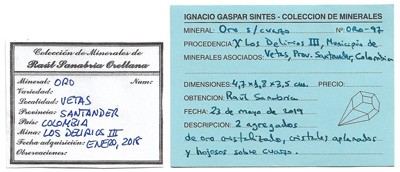 Colección de Minerales de
Raúl Sanabria Orellana
Mineral: ORO Num:
Variedad:
Localidad: VETAS
Provincia: SANTANDER
País: COLOMBIA
Mina: LOS DELIRIOS III
Fecha adquisición: ENERO, 2018
Observaciones:
IGNACIO GASPAR SINTES - COLECCION DE MINERALES
MINERAL: Oro s/cuarzo Nº ORO-97
PROCEDENCIA Y Los Delirios III, Municipio de
MINERALES ASOCIADOS: Vetas, Prov. Santander, Colombia
DIMENSIONES: 4,7 x 1,8 x 3,5 cm.
OBTENCION: Raúl Sanabria
FECHA: 23 de mayo de 2019
DESCRIPCION: 2 agregados
de oro cristalizado, cristales aplanados
y hojosos sobre cuarzo.